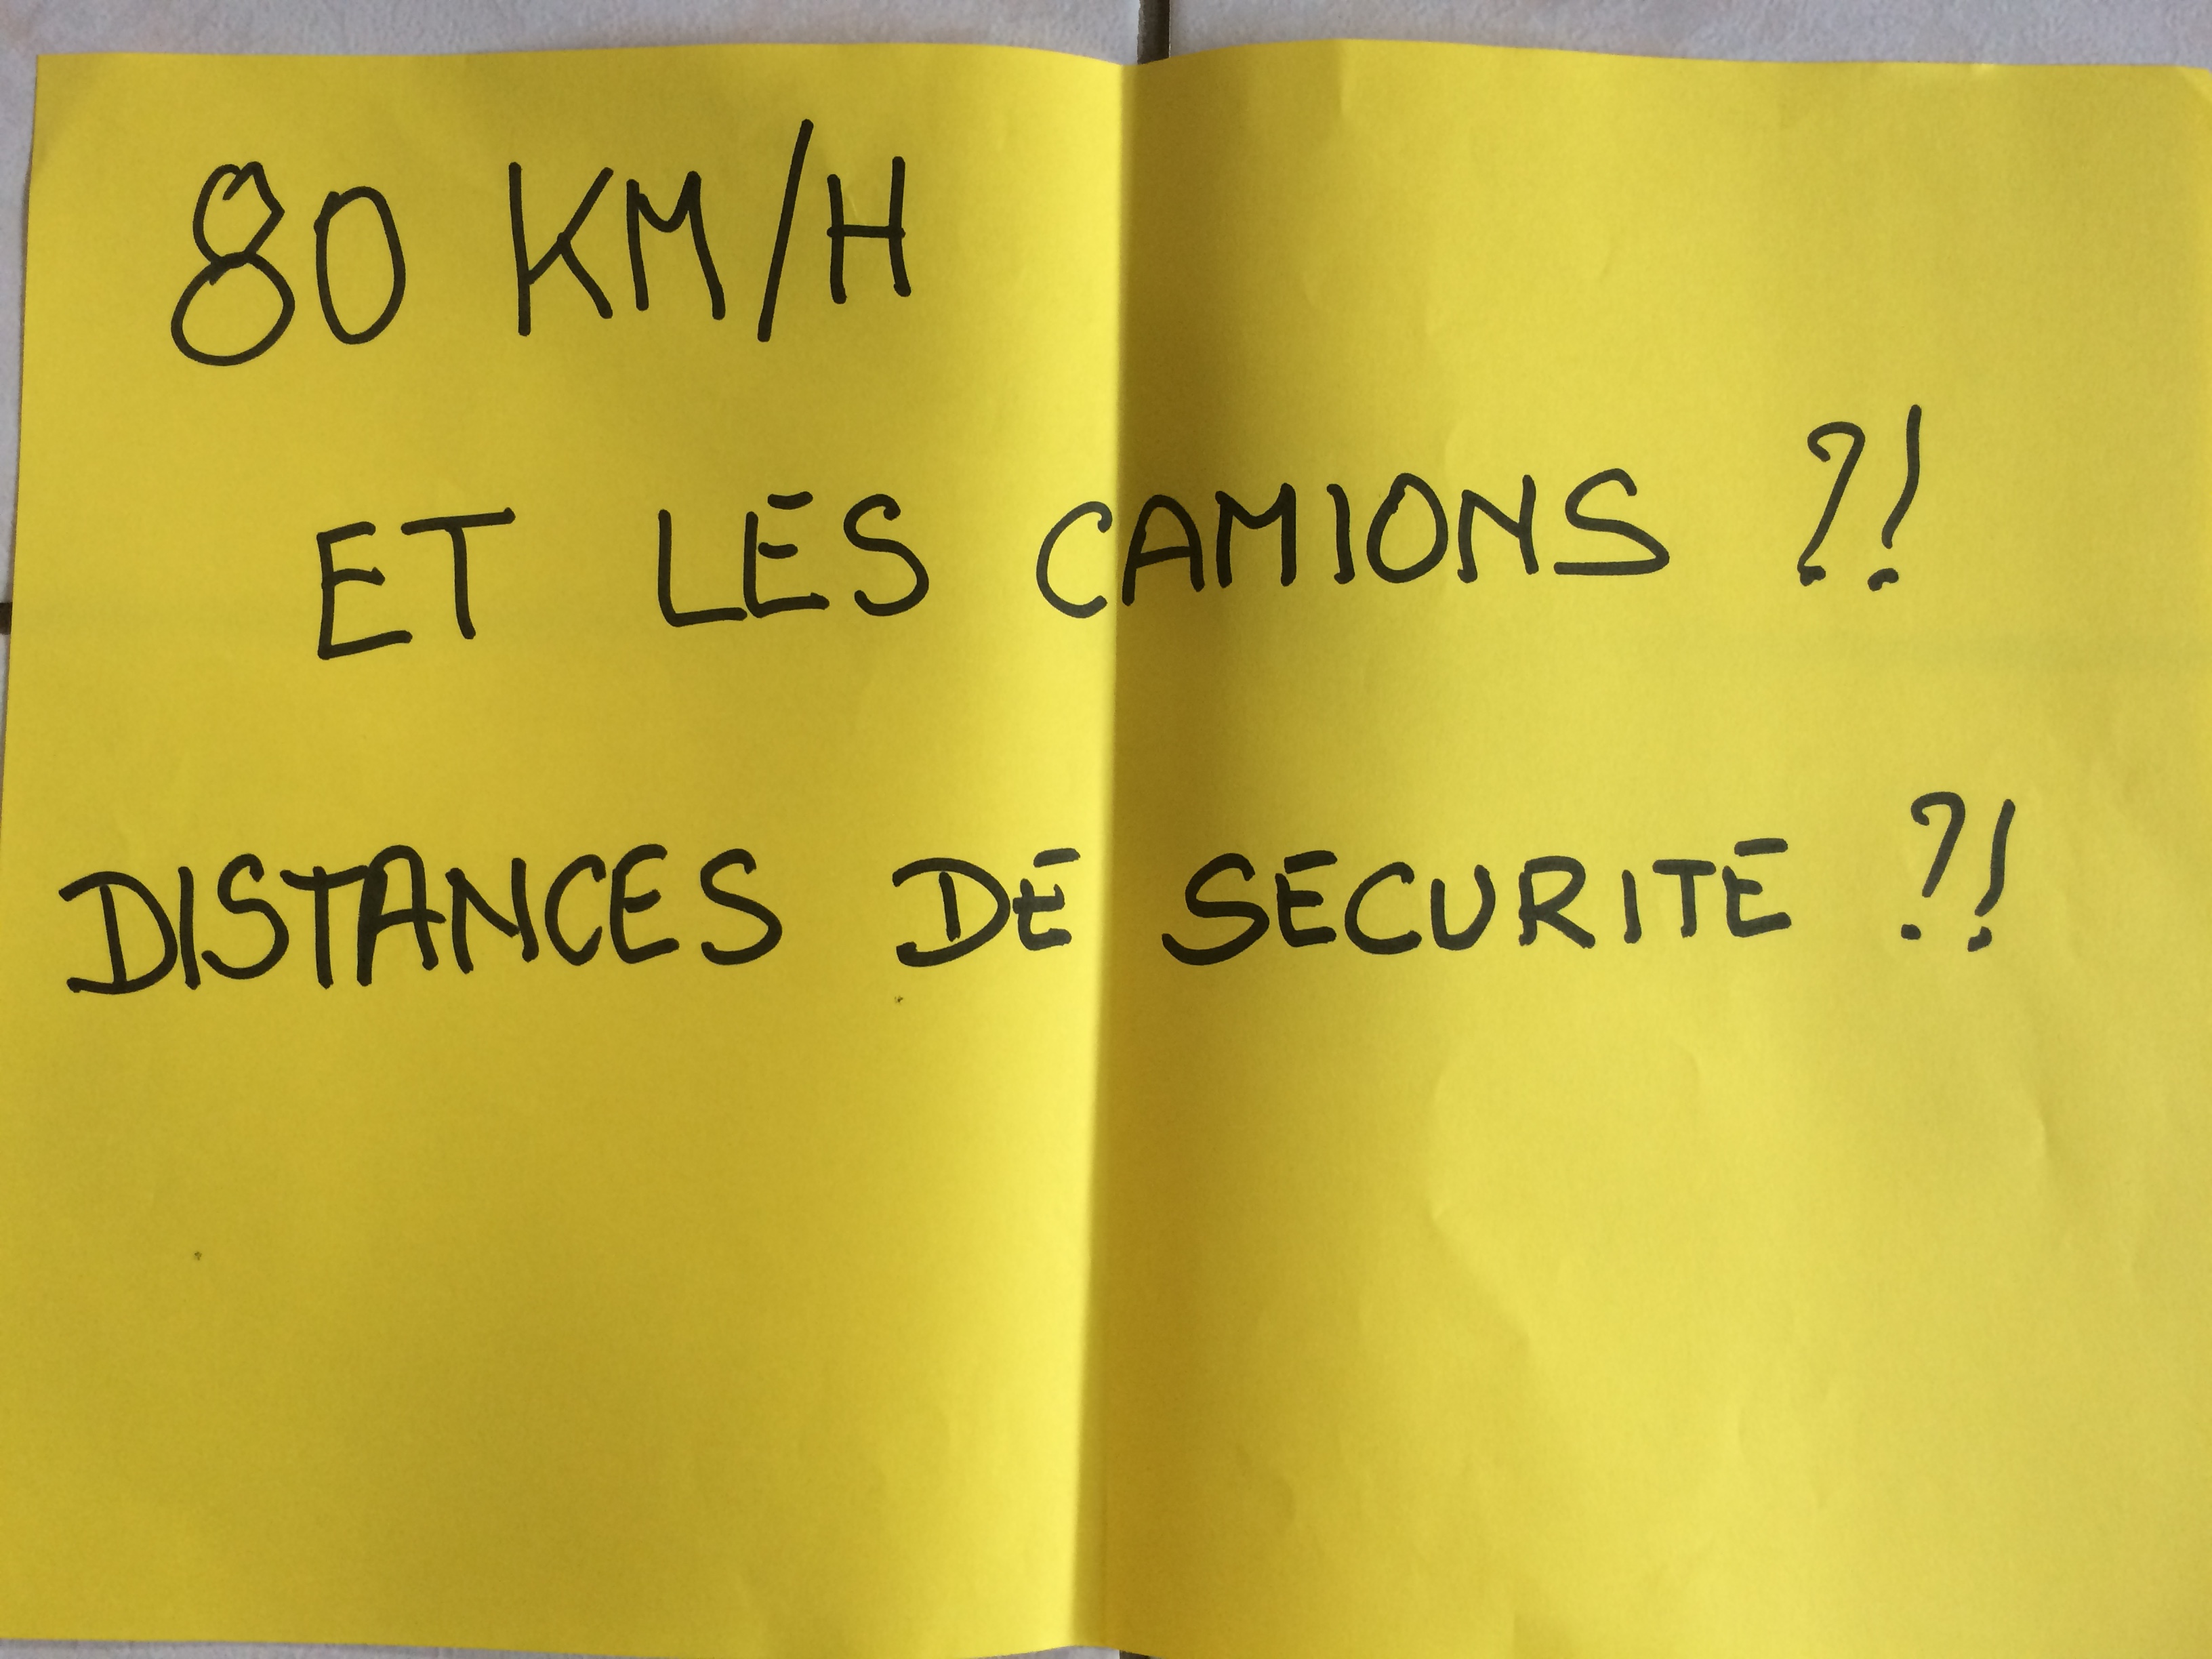 80 KM/H
ET LES CAMIONS ?!
DISTANCES DE SECURITE ?!